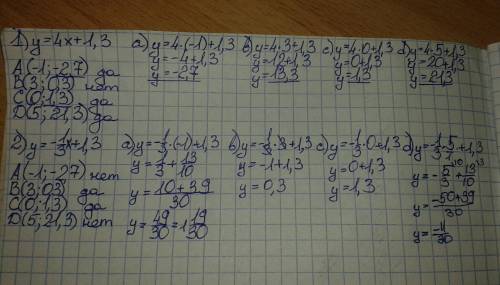 1) y=4x+1,3 a) y=4·(-1)+1,3 b) y=4·3+1,3 c) y=4·0+1,3 d) y=4·5+1,3
y=-4+1,3 y=12+1,3 y=0+1,3 y=20+1,3
A(-1;-2,7) да y=-2,7 y=13,3 y=1,3 y=21,3
B(3;0,3) нет
C(0;1,3) да
D(5;21,3) да
2) y=-1/3x+1,3 a) y=-1/3·(-1)+1,3 b) y=-1/3·3+1,3 c) y=-1/3·0+1,3 d) y=-1/3·5+1,3
A(-1;-27) нет y=1/3+13/10 y=-1+1,3 y=0+1,3 y=-5/3+13/10
B(3;0,3) да y=10+39/30 y=0,3 y=1,3 y=-50+39/30
C(0;1,3) да
D(5;21,3) нет y=49/30=1 19/30 y=-11/30